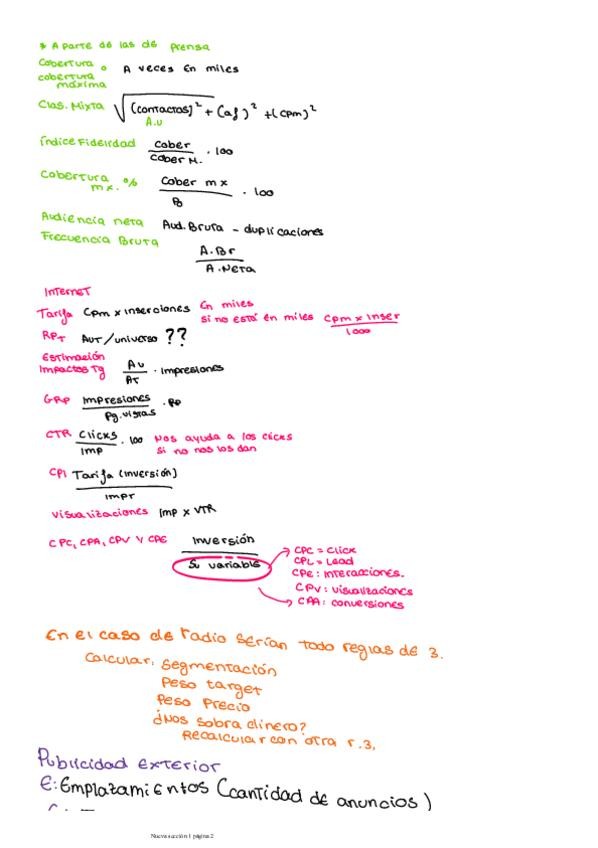 * Aparte de las de prensa
Cobertura o cobertura máxima A veces en miles
Clas. Mixta √(contactos)² + (af)² + (cpm)²
A.U
Índice Fideirdad Cober / Cober M. · 100
Cobertura mx. % Cober mx / P · 100
Audiencia neta Aud. Bruta - duplicaciones
Frecuencia Bruta A.Br / A.Neta
Internet
Tarifa Cpm x inserciones En miles
si no está en miles Cpm x Inser / 1000
RPT AUT/universo ??
Estimación Impactos Tg AU / AT · impresiones
GRP Impresiones / Pg.vistas · RP
CTR Clicks / Imp · 100 Nos ayuda a los clicks
si no nos los dan
CPI Tarifa (inversión) / Impr
Visualizaciones Imp x VTR
CPC, CPA, CPV Y CPE Inversión / Su variable
CPC = Click
CPL = Lead
CPE: Interacciones.
CPV: visualizaciones
CAA: conversiones
En el caso de radio serían todo reglas de 3.
Calcular: Segmentación
Peso target
Peso Precio
¿Nos sobra dinero?
Recalcular con otra r.3.
Publicidad exterior
E: Emplazamientos (cantidad de anuncios)
Nueva sección 1 página 2